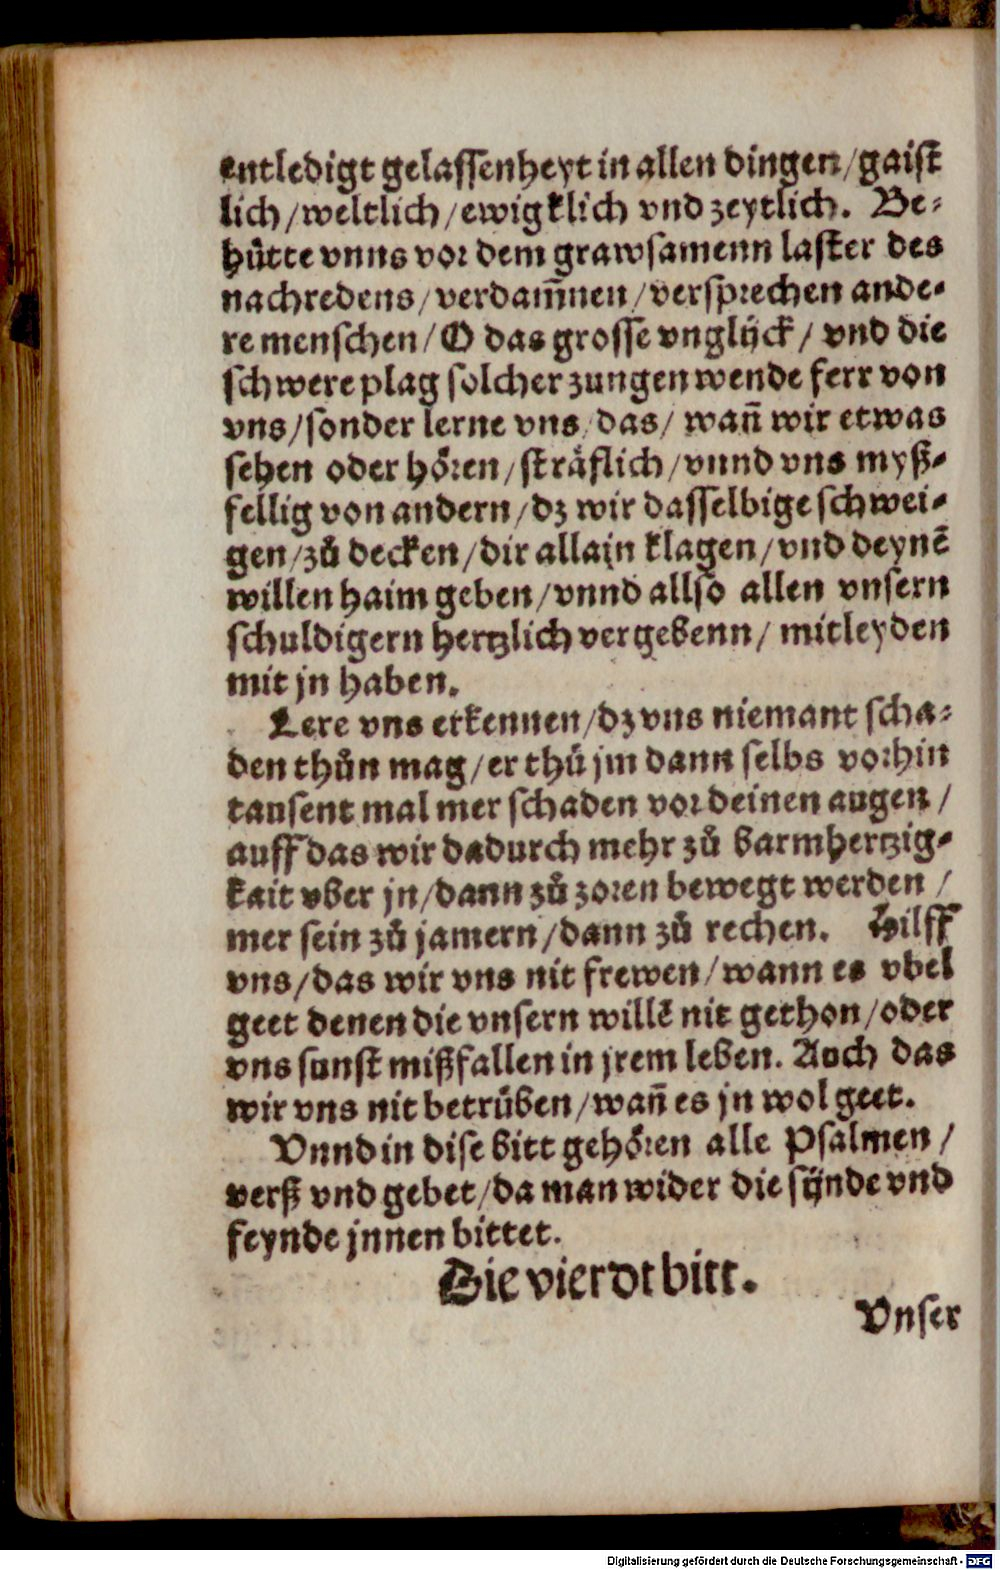 entledigt gelassenheyt in allen dingen/gaist
lich/weltlich/ewigklich vnd zeytlich. Be-
huͤtte vnns vor dem grawsamenn laster des
nachredens/verdam̃nen/versprechen ande-
re menschen/O das grosse vnglÿck/ vnd die
schwere plag solcher zungen wende ferr von
vns/sonder lerne vns/das/ wañ wir etwas
sehen oder hoͤren/straͤflich/vnnd vns myß-
fellig von andern/dz wir dasselbige schwei-
gen/zuͦ decken/dir allain klagen/vnd deynẽ
willen haim geben/vnnd allso allen vnsern
schuldigern hertzlich vergebenn/ mitleyden
mit jn haben.
Lere vns erkennen/dz vns niemant scha-
den thuͦn mag/er thuͤ jm dann selbs vorhin
tausent mal mer schaden vor deinen augen/
auff das wir dadurch mehr zuͦ barmhertzig-
kait vber jn/dann zuͦ zoren bewegt werden/
mer sein zuͦ jamern/dann zuͦ rechen. Hilff
vns/das wir vns nit frewen/wann es vbel
geet denen die vnsern willẽ nit gethon/oder
vns sunst mißfallen in jrem leben. Auch das
wir vns nit betruͤben/wañ es jn wol geet.
Vnnd in dise bitt gehoͤren alle Psalmen/
verß vnd gebet/da man wider die sÿnde vnd
feynde jnnen bittet.
Die vierdt bitt.
Vnser
Digitalisierung gefördert durch die Deutsche Forschungsgemeinschaft - DFG